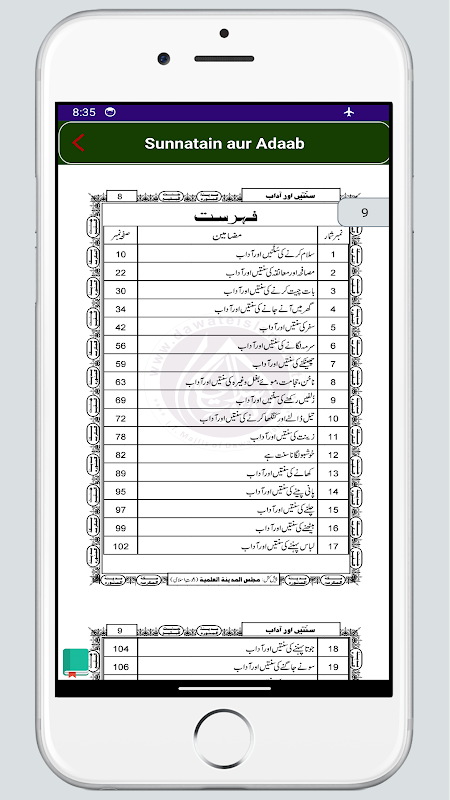 8:35
Sunnatain aur Adaab
8 سنتیں اور آداب
9
فہرست
نمبر شمار مضامین صفحہ نمبر
1 سلام کرنے کی سنتیں اور آداب 10
2 مصافحہ اور معانقہ کی سنتیں اور آداب 22
3 بات چیت کرنے کی سنتیں اور آداب 30
4 گھر میں آنے جانے کی سنتیں اور آداب 34
5 سفر کی سنتیں اور آداب 42
6 سرمہ لگانے کی سنتیں اور آداب 56
7 چھینکنے کی سنتیں اور آداب 59
8 ناخن، حجامت، موئے بغل وغیرہ کی سنتیں اور آداب 63
9 زلفیں رکھنے کی سنتیں اور آداب 69
10 تیل ڈالنے اور کنگھا کرنے کی سنتیں اور آداب 72
11 زینت کی سنتیں اور آداب 78
12 خوشبو لگانا سنت ہے 82
13 کھانے کی سنتیں اور آداب 89
14 پانی پینے کی سنتیں اور آداب 95
15 چلنے کی سنتیں اور آداب 97
16 بیٹھنے کی سنتیں اور آداب 99
17 لباس پہننے کی سنتیں اور آداب 102
پیش کش: مجلس المدینۃ العلمیۃ (دعوت اسلامی)
9 سنتیں اور آداب
18 جوتا پہننے کی سنتیں اور آداب 104
19 سونے جاگنے کی سنتیں اور آداب 106